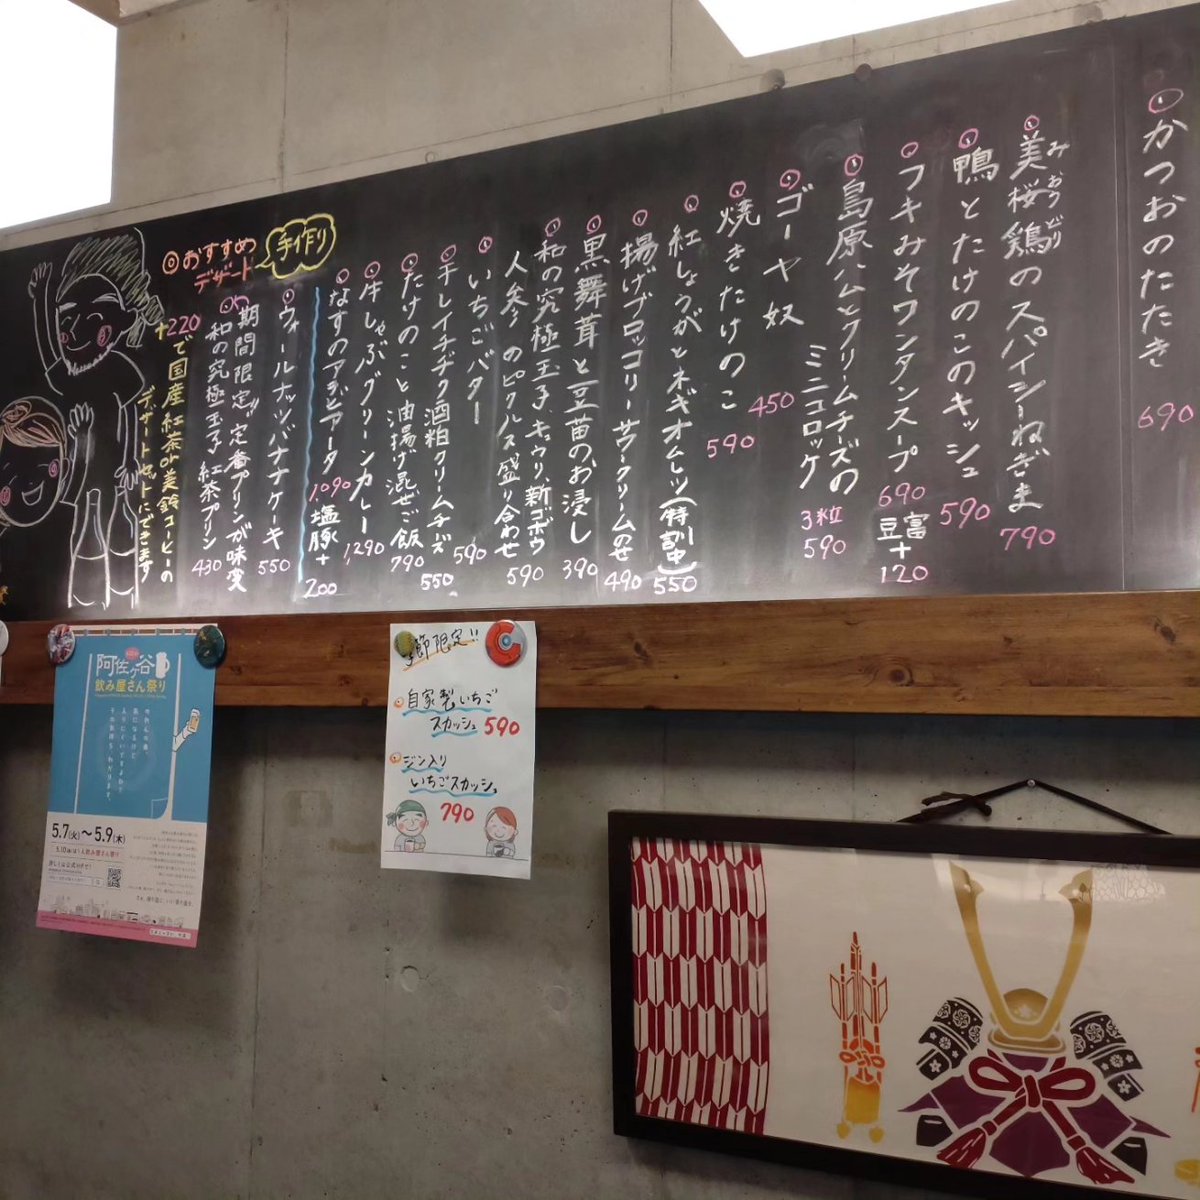 かつおのたたき
690
美桜鶏のスパイシーねぎま
みおうどり
790
鴨とたけのこのキッシュ
590
フキみそワンタンスープ
690
豆富+
120
島原ハムとクリームチーズの
ミニコロッケ
3粒
590
ゴーヤ奴
450
焼きたけのこ
590
紅しょうがとネギオムレツ(特訓中)
550
揚げブロッコリーサワークリームのせ
490
黒舞茸と豆苗のお浸し
390
和の究極玉子、キュウリ、新ゴボウ
人参のピクルス盛り合わせ
590
いちごバター
590
干しイチヂク酒粕クリームチーズ
550
たけのこと油揚げ混ぜご飯
790
牛しゃぶグリーンカレー
1290
なすのアラビアータ
1,090
塩豚+
200
手作り
おすすめ
デザート
ウォールナッツバナナケーキ
550
期間限定 定番プリンが味変
和の究極玉子 紅茶プリン
430
+220で国産紅茶or美鈴コーヒーの
デザートセットにできます
阿佐ヶ谷
飲み屋さん祭り
5.7(火)〜5.9(木)
季節限定!!
自家製いちご
スカッシュ 590
ジン入り
いちごスカッシュ
790